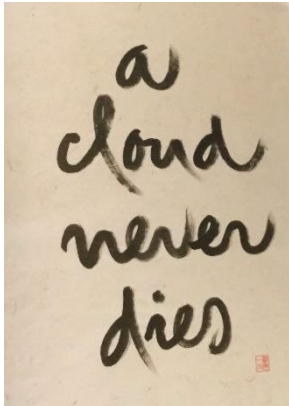 a
cloud
never
dies